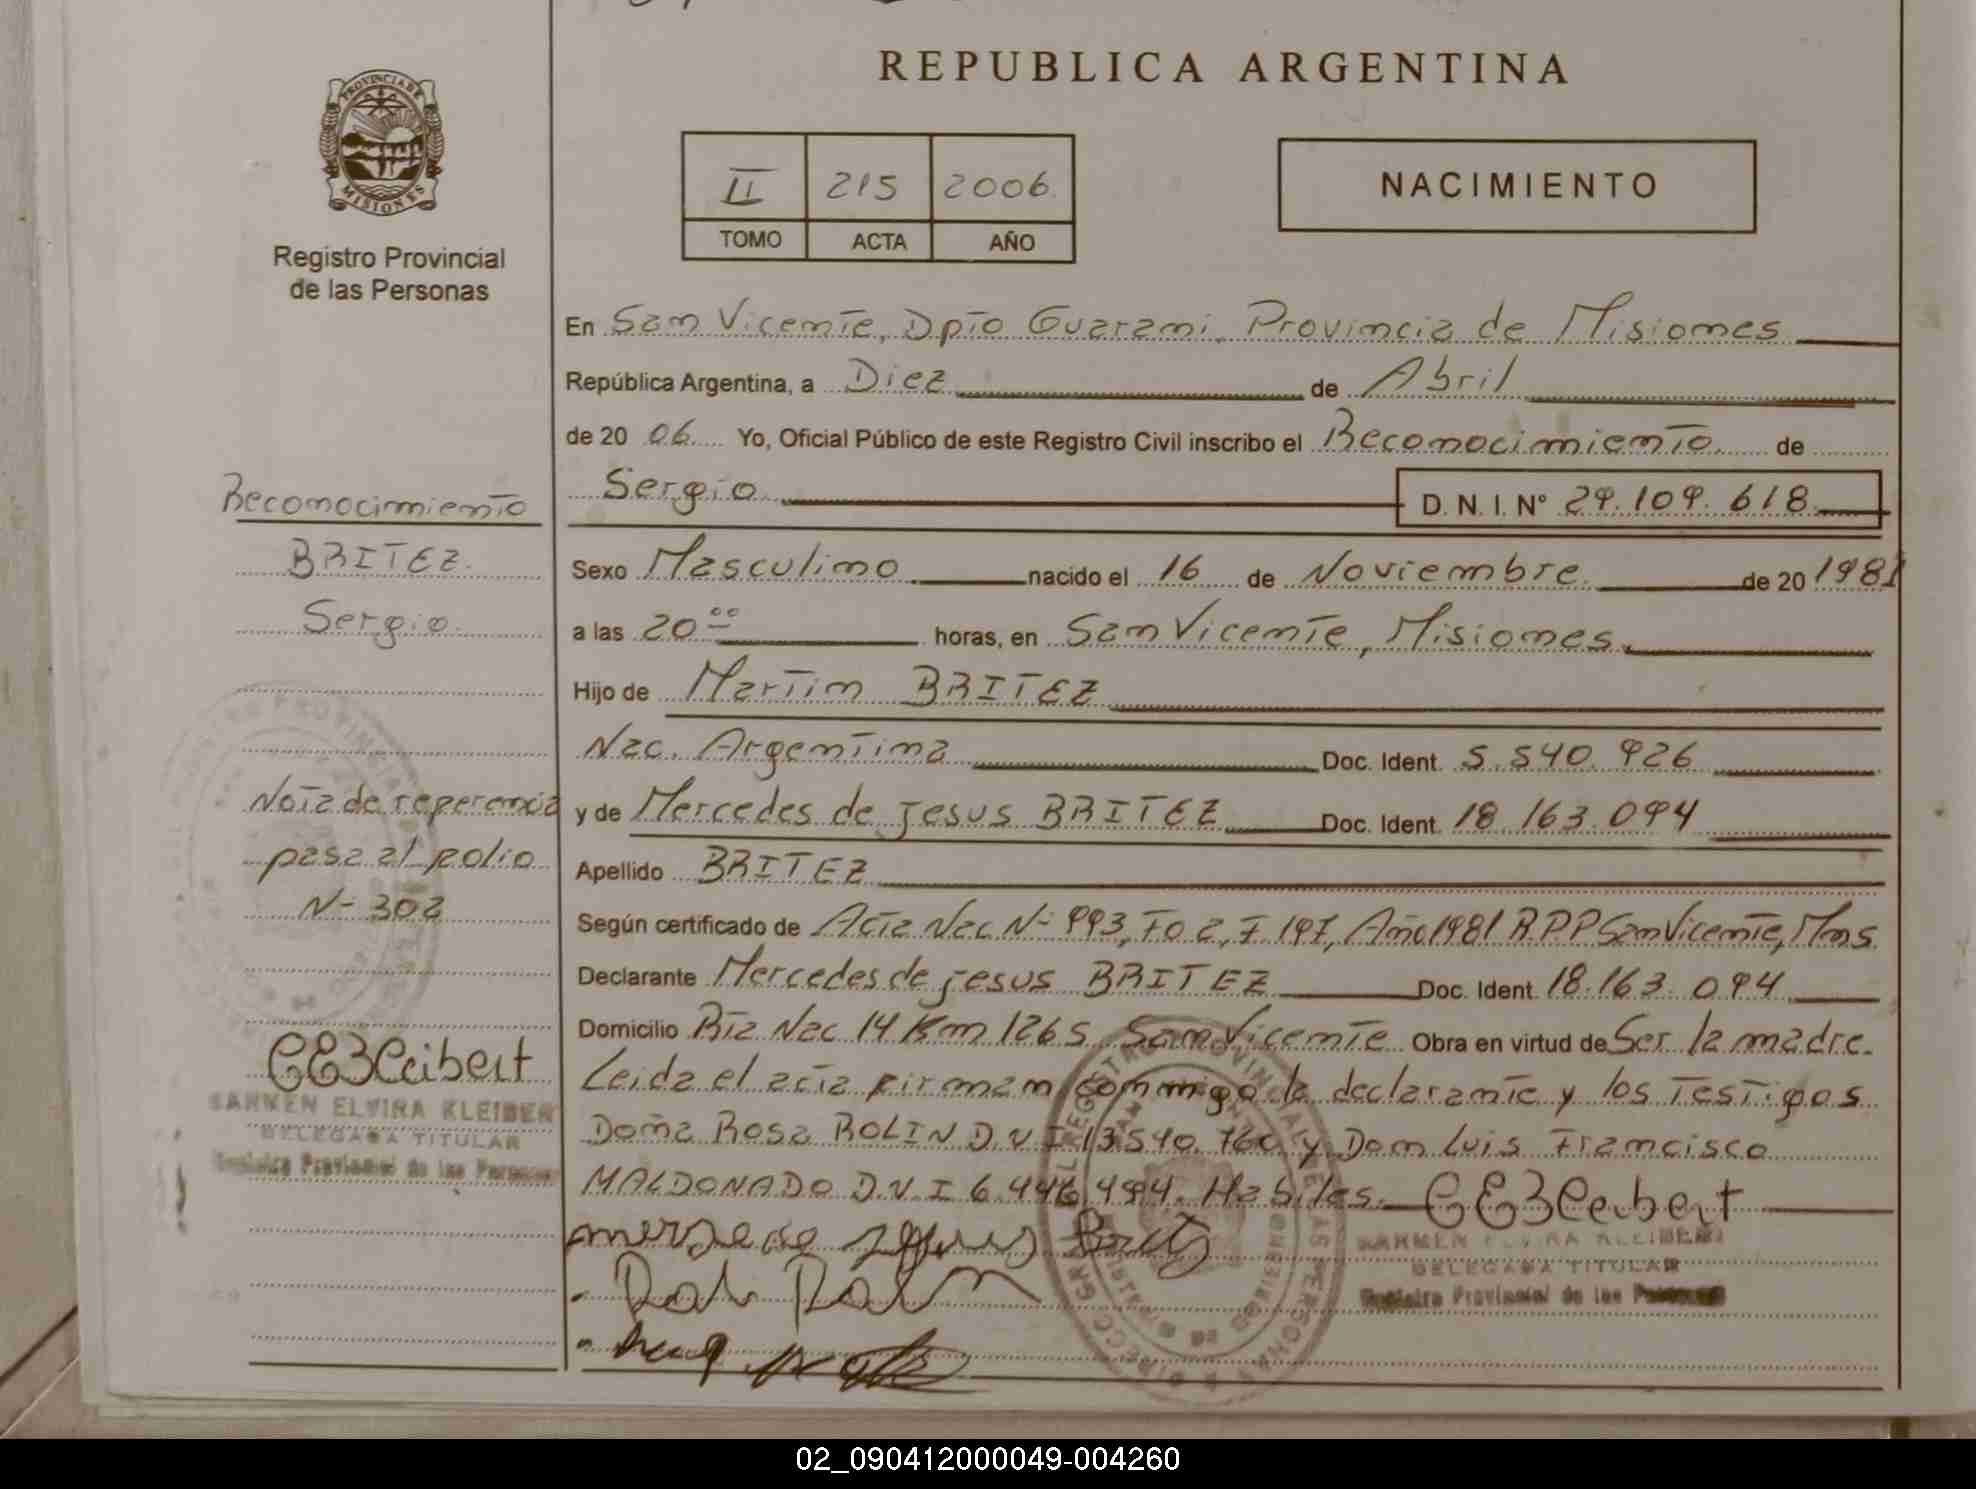 REPUBLICA ARGENTINA
PROVINCIA DE
MISIONES
Registro Provincial
de las Personas
II 215 2006
TOMO ACTA AÑO
NACIMIENTO
En San Vicente, Dpto Guarani, Provincia de Misiones
República Argentina, a Diez de Abril
de 20 06 Yo, Oficial Público de este Registro Civil inscribo el Reconocimiento de
Sergio D. N. I. N° 29.109.618
Sexo Masculino nacido el 16 de Noviembre de 20 1981
a las 20 00 horas, en San Vicente, Misiones
Hijo de Martin BRITEZ
Nac. Argentina Doc. Ident. 5.540.926
y de Mercedes de jesus BRITEZ Doc. Ident. 18.163.094
Apellido BRITEZ
Según certificado de Acta Nac N- 993, To 2, F 197, Año 1981 R.P.P San Vicente, Mns
Declarante Mercedes de jesus BRITEZ Doc. Ident. 18.163.094
Domicilio Rta Nac 14 Km 1265 San Vicente Obra en virtud de Ser la madre.
Leida el acta firman conmigo la declarante y los testigos
Doña Rosa ROLIN D.N.I 13.540.760 y Don Luis Francisco
MALDONADO D.N.I 6.446.494. Habiles.
CEKleibert
CARMEN ELVIRA KLEIBERT
DELEGADA TITULAR
Registro Provincial de las Personas
Reconocimiento
BRITEZ
Sergio
Nota de referencia
pasa al folio
N- 302
CEKleibert
CARMEN ELVIRA KLEIBER
DELEGADA TITULAR
Registro Provincial de las Personas
02_090412000049-004260